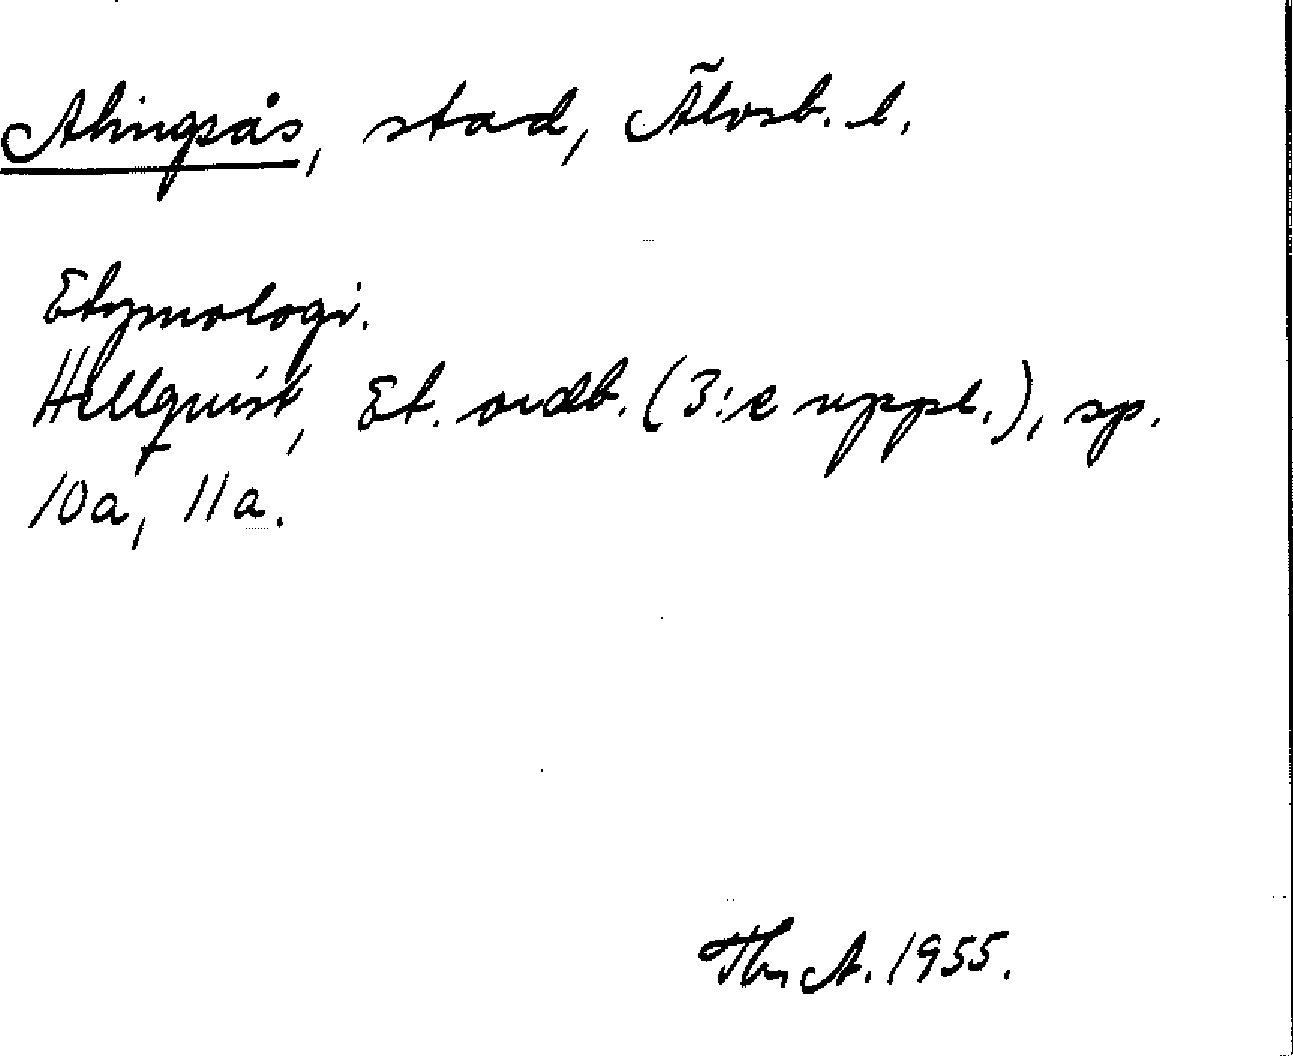 Alingsås, stad, Älvsb. l.
Etymologi.
Hellquist, Et. ordb. (3:e uppl.), sp.
10a, 11a.
Thy A. 1955.